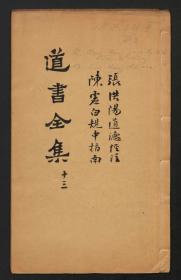 張洪陽道德經注
陳虛白規中指南
道書全集
十三